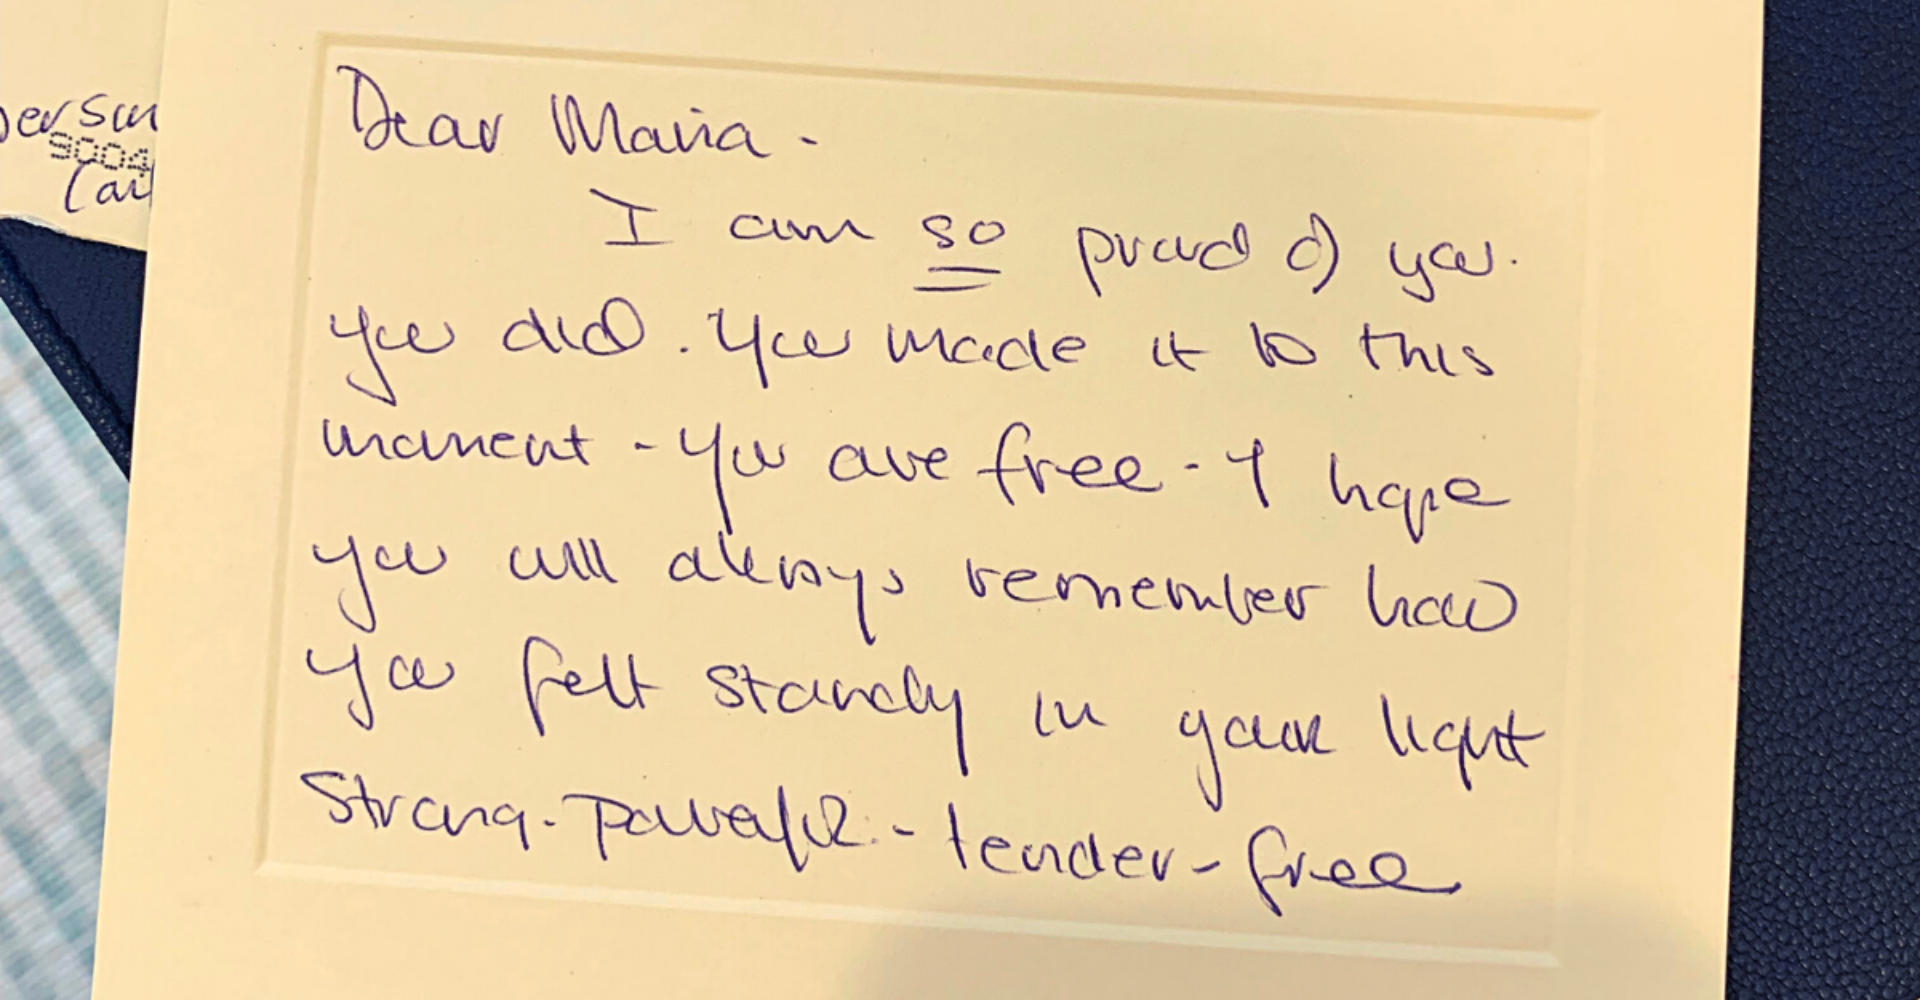 Dear Maria -
I am so proud of you.
you did. You made it to this
moment - You are free - I hope
you will always remember how
you felt standing in your light
Strong - Powerful - tender - free